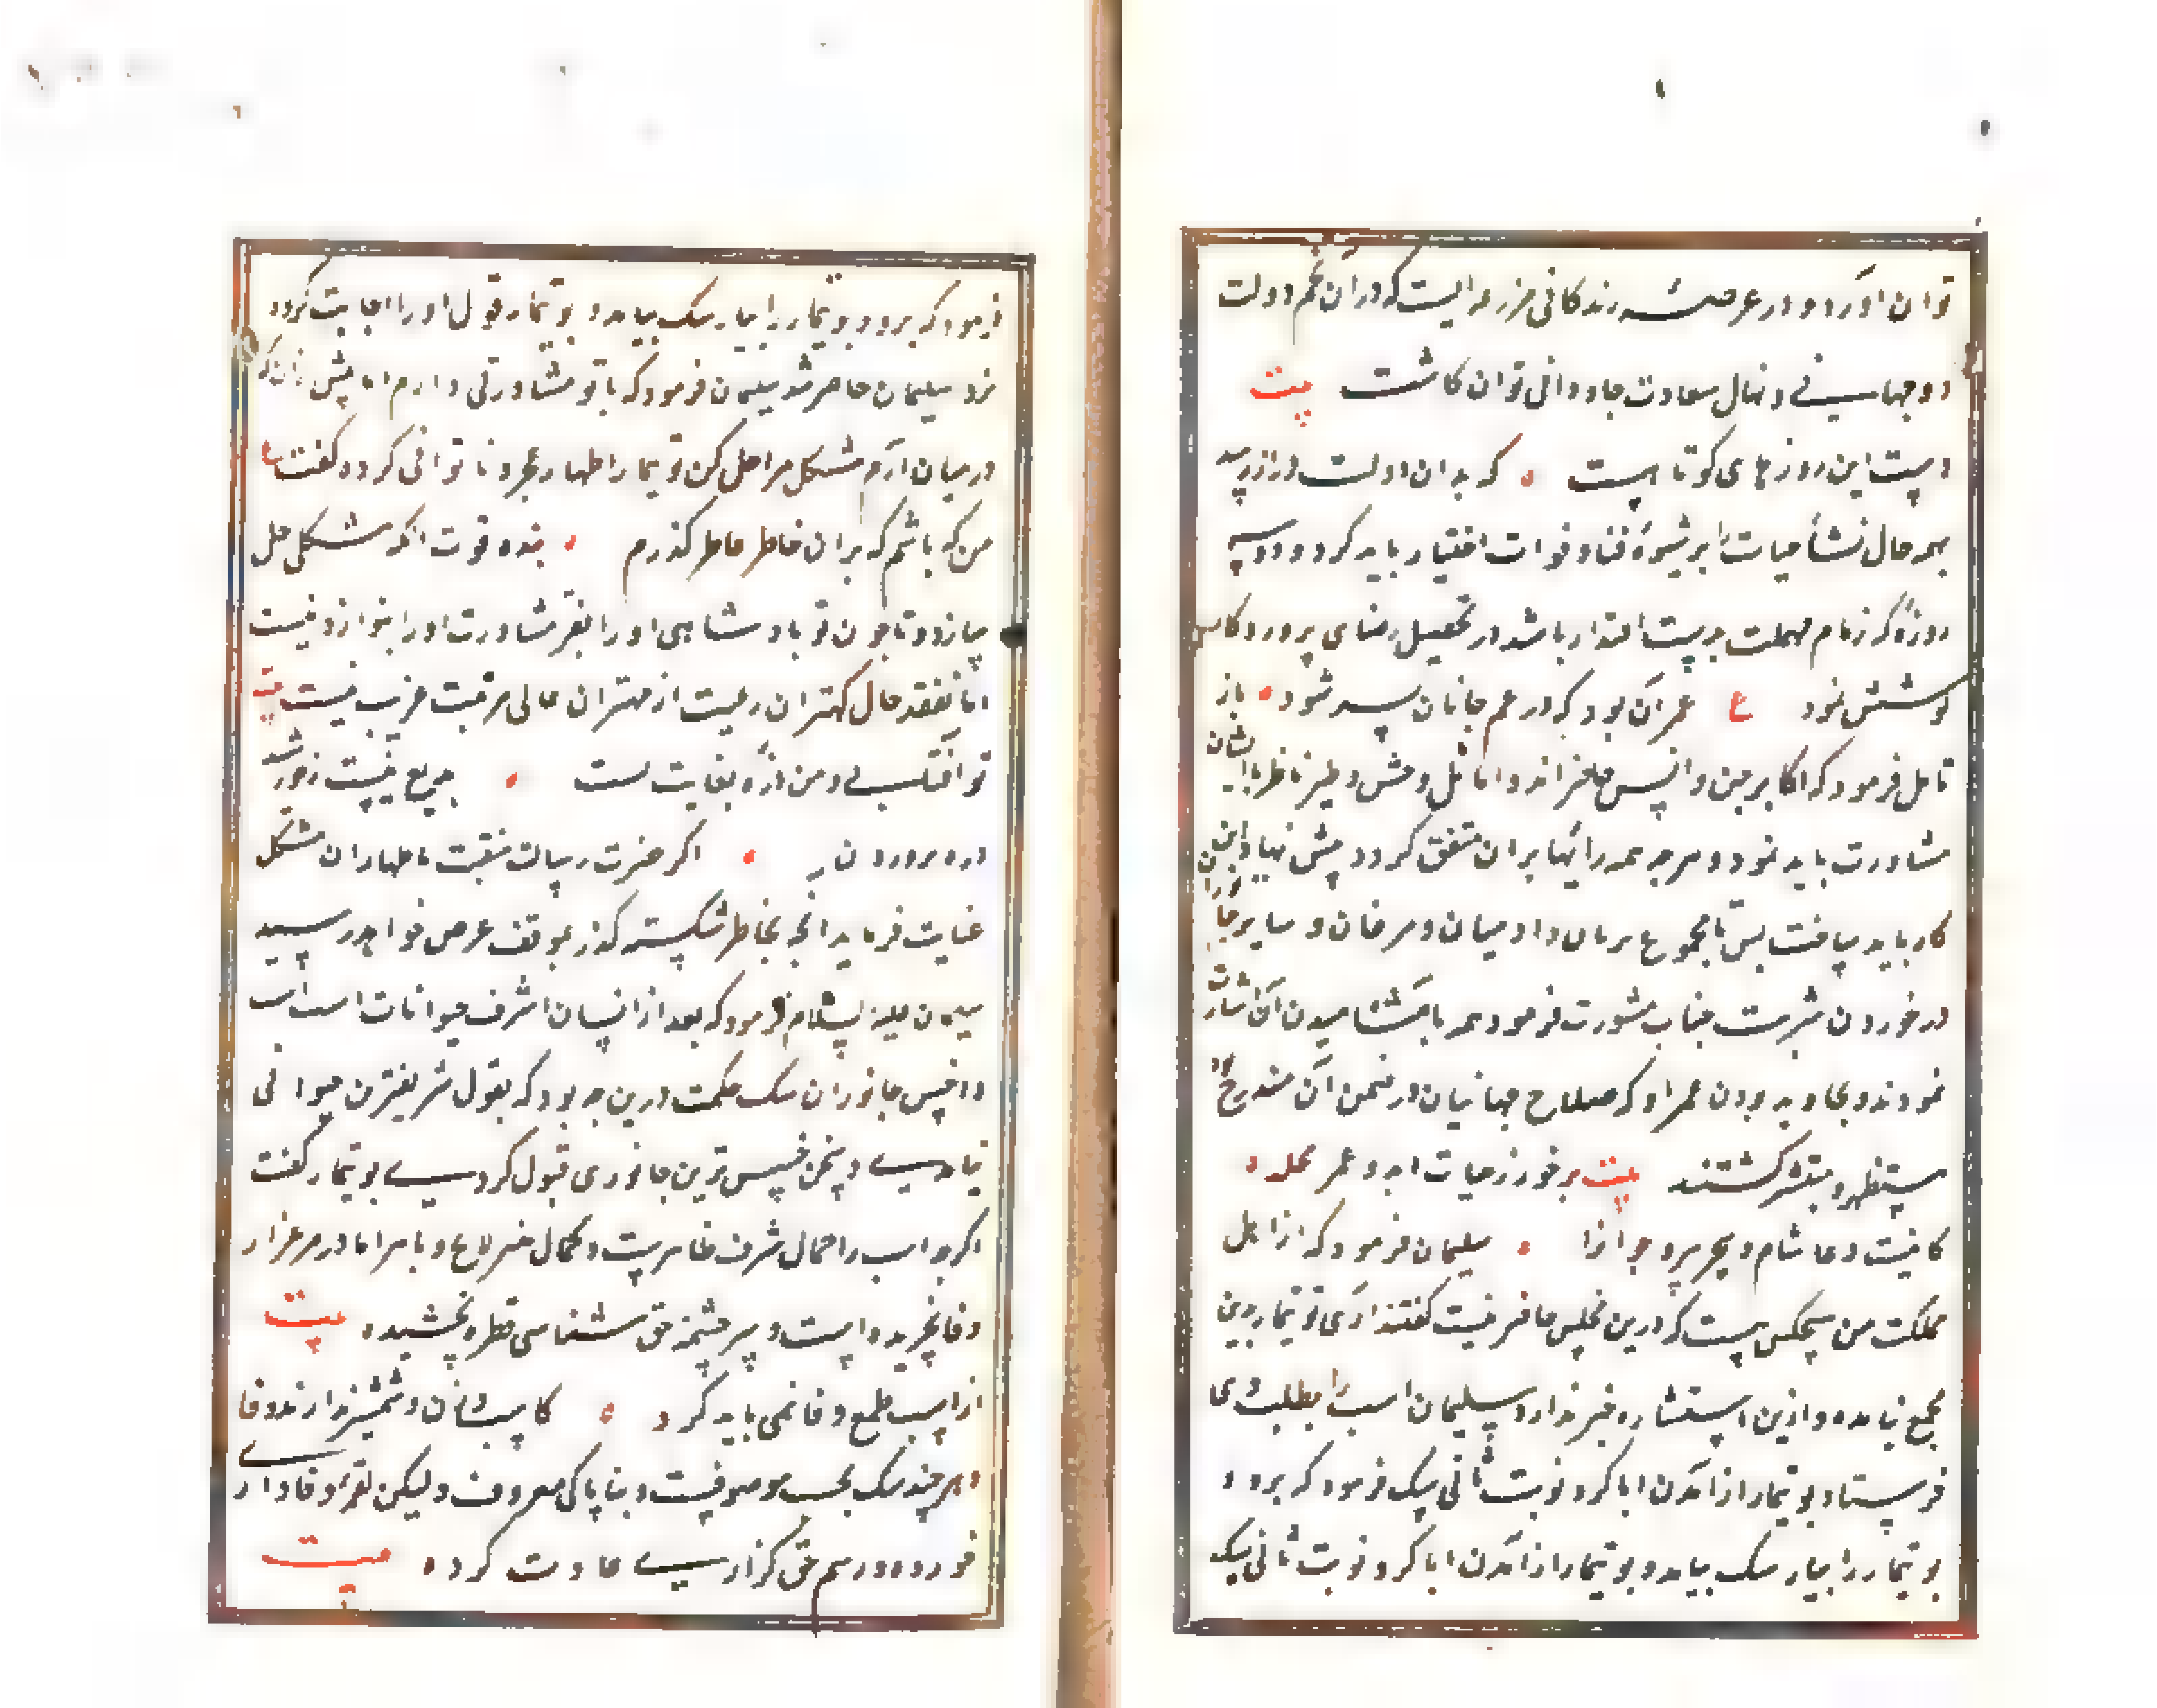 توان آورد و در عرصه زندگانی مزرعه ایست که در آن تخم دولت
دو جهانی و نهال سعادت جاودانی توان کاشت بیت
دست این روزهای کوتاهست که بدان دولت دراز رسد
بهر حال نشأ حیات را بر شیوهٔ فنا و فوات اختیار باید کرد و دو سه
روزه که زمام مهلت بدست اقتدار باشد در تحصیل رضای پروردگار
کوشش نمود ع عمر آن بود که در غم جانان بسر شود باز
تامل فرمود که اکابر جن و انس حاضراند و اماثل وحش و طیر ناظر با ایشان
مشاورت باید نمود و هر چه همه را آنها بر آن متفق گردد پیش نهاد این
کار باید ساخت پس با مجموع پریان و آدمیان و مرغان و سایر جانوران
در خوردن شربت حیات مشورت فرمود همه با آشامیدن آن اشارت
نمودند و بجاوید بودن عمر او که صلاح جهانیان در ضمن آن مندرج بود
مستظهر و مستبشر گشتند بیت برخور ز حیات ابد و عمر مخلد
سلیمان فرمود که از اهل
مملکت من هیچکس هست که درین مجلس حاضر نیست گفتند آری بوتیمار بدین
مجمع نیامده و ازین استشاره خبر ندارد سلیمان اسب را بطلب وی
فرستاد بوتیمار از آمدن ابا کرد نوبت ثانی سگ فرمود که برود و
بوتیمار را بیار سگ بیامد و بوتیمار از آمدن ابا کرد نوبت ثانی سگ
فرمود که برود و بوتیمار را بیار سگ بیامد و بوتیمار قول او را اجابت کرده
نزد سلیمان حاضر شد سلیمان فرمود که با تو مشاورتی دارم اما پیش زان که
در میان آرم مشکل مرا حل کن بوتیمار اظهار عجز و ناتوانی کرده گفت
من که باشم که بر آن خاطر عاطر گذرم بنده قوت آنکه مشکل حل
سازد و تا چون تو پادشاهی او را بعز مشاورت او را بنوازد نیست
اما تفقد حال کهتران رعیت از مهتران عالی مرتبت غریب نیست بیت
تو آفتابی و من ذره بغایت پست بدیع نیست ز خورشید
ذره پروردن اگر حضرت رسالت منقبت باظهار آن مشکل
عنایت فرماید آنچه بخاطر شکسته گذرد بموقف عرض خواهد رسید
سلیمان علیه السلام فرمود که بعد از انسان اشرف حیوانات اسب است
و اخس جانوران سگ حکمت درین چه بود که بقول شریفترین حیوانی
نیامدی و بسخن خسیس ترین جانوری قبول کردی بوتیمار گفت
اگر چه اسب را جمال شرف ظاهرست و کمال هنر لایح و باهر اما در مرغزار
وفا نچریده است و سرچشمه حق شناسی قطره نچشیده بیت
از اسب طمع وفا نمی باید کرد کاسب و زن و شمشیر ندارند وفا
و هر چند سگ بخست موصوفست و بناپاکی معروف ولیکن لقمه وفاداری
خورده و رسم حق گزاری عادت کرده بیت